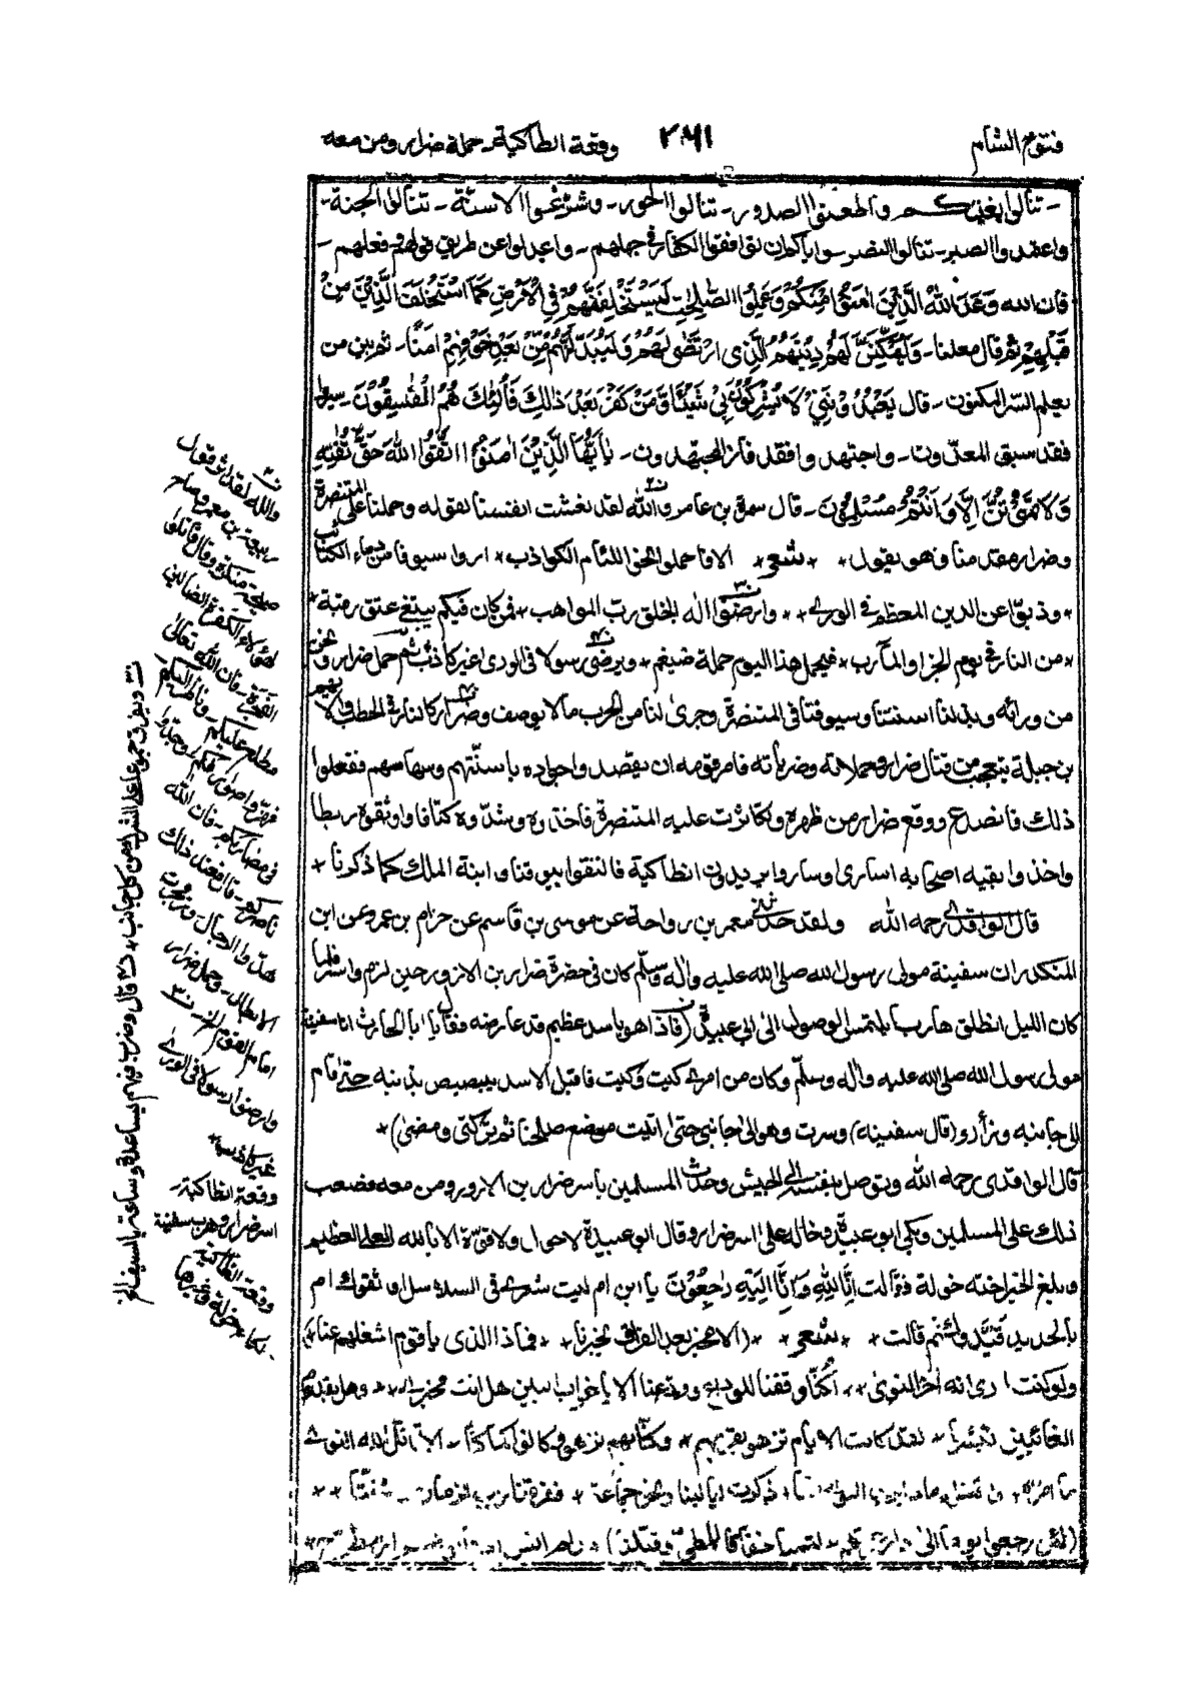 فتوح الشام
٢٨١
وقعة انطاكية - حملة ضرار ومن معه
- تنالوا بغيتكم واطعنوا الصدور - تنالوا الحور - وشرّعوا الاسنّة - تنالوا الجنة -
واعقدوا الصبر - تنالوا النصر واياكم ان توافقوا الكفار في جهلهم - واعدلوا عن طريق قولهم وفعلهم -
فان الله وَعَدَ اللّٰهُ الَّذِيْنَ اٰمَنُوْا مِنْكُمْ وَعَمِلُوا الصّٰلِحٰتِ لَيَسْتَخْلِفَنَّهُمْ فِي الْاَرْضِ كَمَا اسْتَخْلَفَ الَّذِيْنَ مِنْ
قَبْلِهِمْ ثم قال معلنا - وَلَيُمَكِّنَنَّ لَهُمْ دِيْنَهُمُ الَّذِى ارْتَضٰى لَهُمْ وَلَيُبَدِّلَنَّهُمْ مِّنْ بَعْدِ خَوْفِهِمْ اَمْنًا - ثم بين من
يعلم السرّ المكنون - قال يَعْبُدُوْنَنِيْ لَا يُشْرِكُوْنَ بِيْ شَيْئًا وَمَنْ كَفَرَ بَعْدَ ذٰلِكَ فَاُولٰئِكَ هُمُ الْفٰسِقُوْنَ - سيروا
فقد سبق المعدّون - واجتهدوا فقد فاز المجتهدون - يٰاَيُّهَا الَّذِيْنَ اٰمَنُوا اتَّقُوا اللّٰهَ حَقَّ تُقٰتِهٖ
وَلَا تَمُوْتُنَّ اِلَّا وَاَنْتُمْ مُسْلِمُوْنَ - قال سمرة بن عامر والله لقد نعشت انفسنا بقوله وحملنا على المتنصرة
وضرار مقدمنا وهو يقول * * شعر * الا فاحملوا نحو اللئام الكواذب * ارووا سيوفا من دماء الكتائب
* وذبوا عن الدين المعظم في الورى * * وارضوا اله الخلق ربّ المواهب * فمن كان فيكم يبتغي عتق رقبة *
* من النار في يوم الجزا والمآرب * فيحمل هذا اليوم حملة ضيغم * ويرضى رسولا في الورى غير كاذب ثم حمل ضرار ونحن
من ورائه وبذلنا اسنتنا وسيوفنا في المتنصرة وجرى لنا من الحرب ما لا يوصف وضرار كالنار في الحطب والايهم
بن جبلة يتعجب من قتال ضرار وحملاته وضرباته فامر قومه ان يقصدوا جواده باسنّتهم وسهامهم ففعلوا
ذلك فانصدع ووقع ضرار من ظهره وتكاثرت عليه المتنصرة فاخذوه وشدّوه كتافا واوثقوه رباطا
واخذوا بقيه اصحابه اسارى وساروا يريدون انطاكية فالتقوا بيوقنا وابنة الملك كما ذكرنا *
قال الواقدي رحمه الله ولقد حدثني معمر بن رواحة عن موسى بن قاسم عن حزام بن عمرو عن ابن
المنكدر ان سفينة مولى رسول الله صلى الله عليه واله وسلّم كان في حضرة ضرار بن الازور حين لزم واسر فلما
كان الليل انطلق هاربا يلتمس الوصول الى ابي عبيدة (فاذا هو باسد عظيم قد عارضه فقال يا ابا الحارث انا سفينة
مولى رسول الله صلى الله عليه واله وسلّم وكان من امري كيت وكيت فاقبل الاسد يبصبص بذنبه حتى قام
الى جانبه وزأر و (قال سفينة) وسرت وهو الى جانبي حتى اتيت موضع صلحنا ثم تركني ومضى) *
قال الواقدى رحمه الله وتوصل بنفسه الى الجيش وحدث المسلمين باسر ضرار بن الازور ومن معه فصعب
ذلك على المسلمين وبكى ابو عبيدة وخالد على اسر ضرار وقال ابو عبيدة لا حول ولا قوّة الا بالله العلي العظيم
وبلغ الخبر اخته خولة فقالت اِنَّا لِلّٰهِ وَاِنَّا اِلَيْهِ رَاجِعُوْنَ يا ابن ام ليت شعري في السلاسل اوثقوك ام
بالحديد قيّدوك ثم قالت * * شعر * * (الا مخبر بعد الفراق يخبرنا * فماذا الذى يا قوم اشغلهم عنا *)
ولو كنت ادرى انه اخر النوى * * لكنّا وقفنا للوداع وودعنا الا يا غراب البين هل انت مخبرى * * وهل بقدوم
الغائبين تبشرنا * لقد كانت الايام تزهو بقربهم * وكنّا بهم نزهو وكانوا كما كنا - الا قاتل الله النوى
ما امرّه * ذكرت ليالينا ونحن جماعة * ففرقنا ريب الزمان وشتتنا * *
(لئن رجعوا يوما الى دار عزهم * لثمنا خفافا للمطي وقبّلنا) *
والله لقد اثر قول
ربيعة بن معمر وصاح
صيحة منكرة وقال قاتلوا
هٰؤلاء الكفرة الضالين
الفجرة - فان الله تعالى
مطلع عليكم - وناظر اليكم
في مضاربكم - فان الله
ناصركم - فعند ذلك
الابطال - وحمل ضرار
امام القوم الخ - ن٣
وارضوا رسولا في الورى
غير كاذب *
وقعة انطاكية -
اسر ضرار وهرب سفينة
وقعة انطاكية
بكاء خولة وغيرها